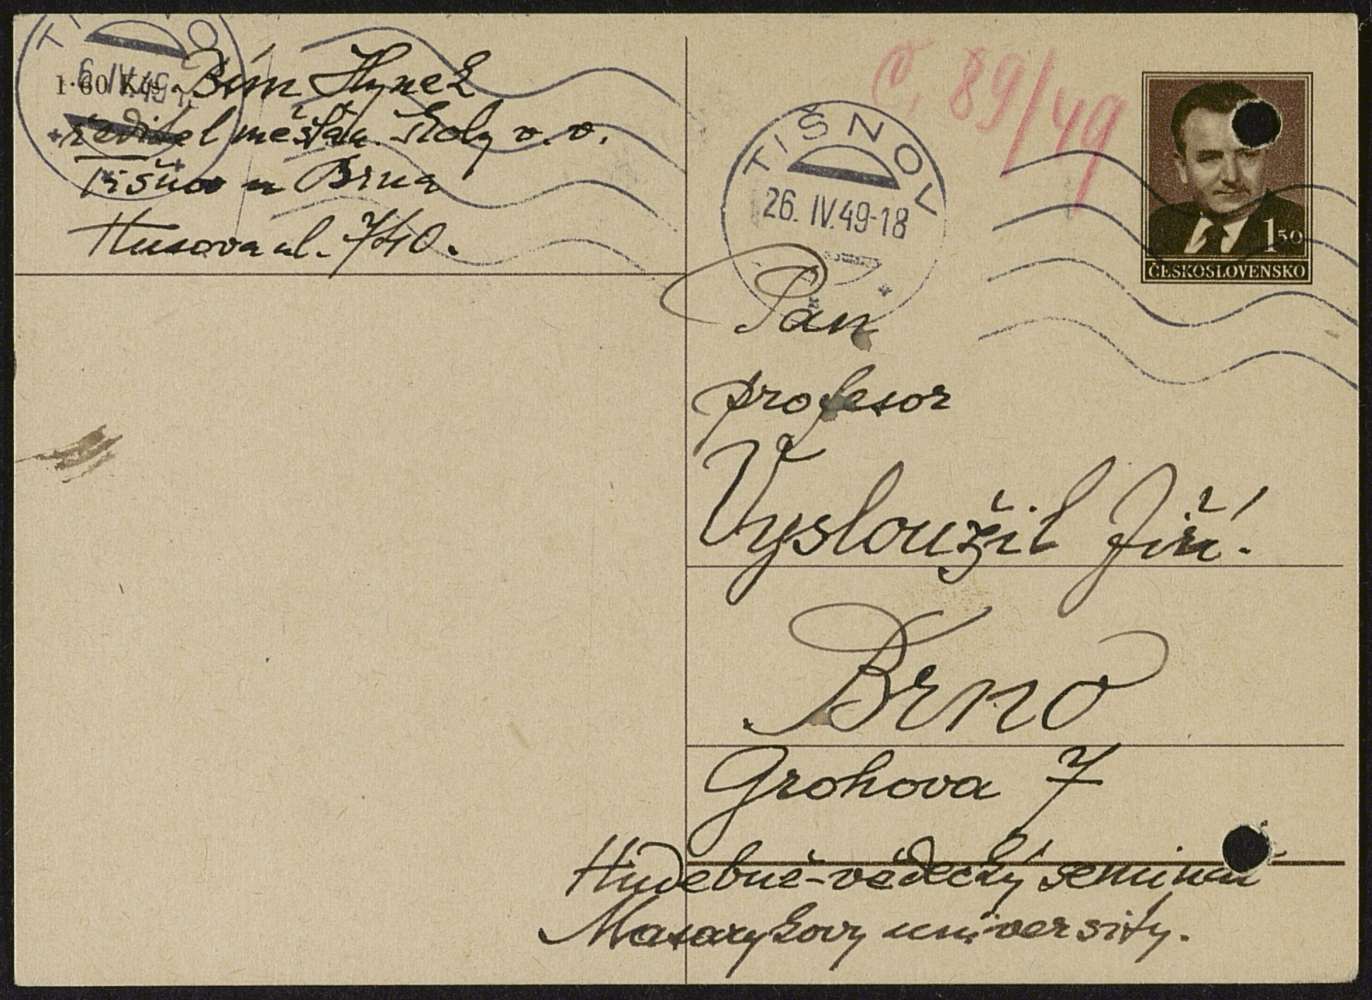 TIŠNOV
6. IV. 49-
1·60 Kčs
Bím Hynek
ředitel měšťan. školy v. v.
Tišnov u Brna
Husova ul. 7/40.
č. 89/49
TIŠNOV
26. IV. 49-18
1 50
ČESKOSLOVENSKO
Pan
profesor
Vysloužil Jiří.
Brno
Grohova 7
Hudebně-vědecký seminář
Masarykovy university.